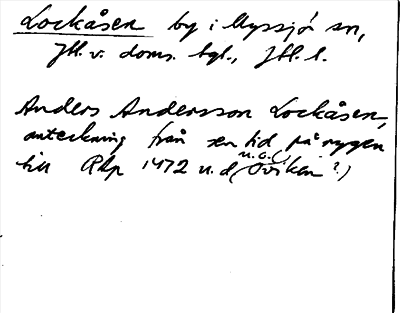 Lockåsen by i Myssjö sn,
Jtl. v. doms. bgl., Jtl. l.
Anders Andersson Lockåsen,
anteckning från sen tid på ryggen
till Rhp 1472 u.d. (Oviken?)
u.o. (,